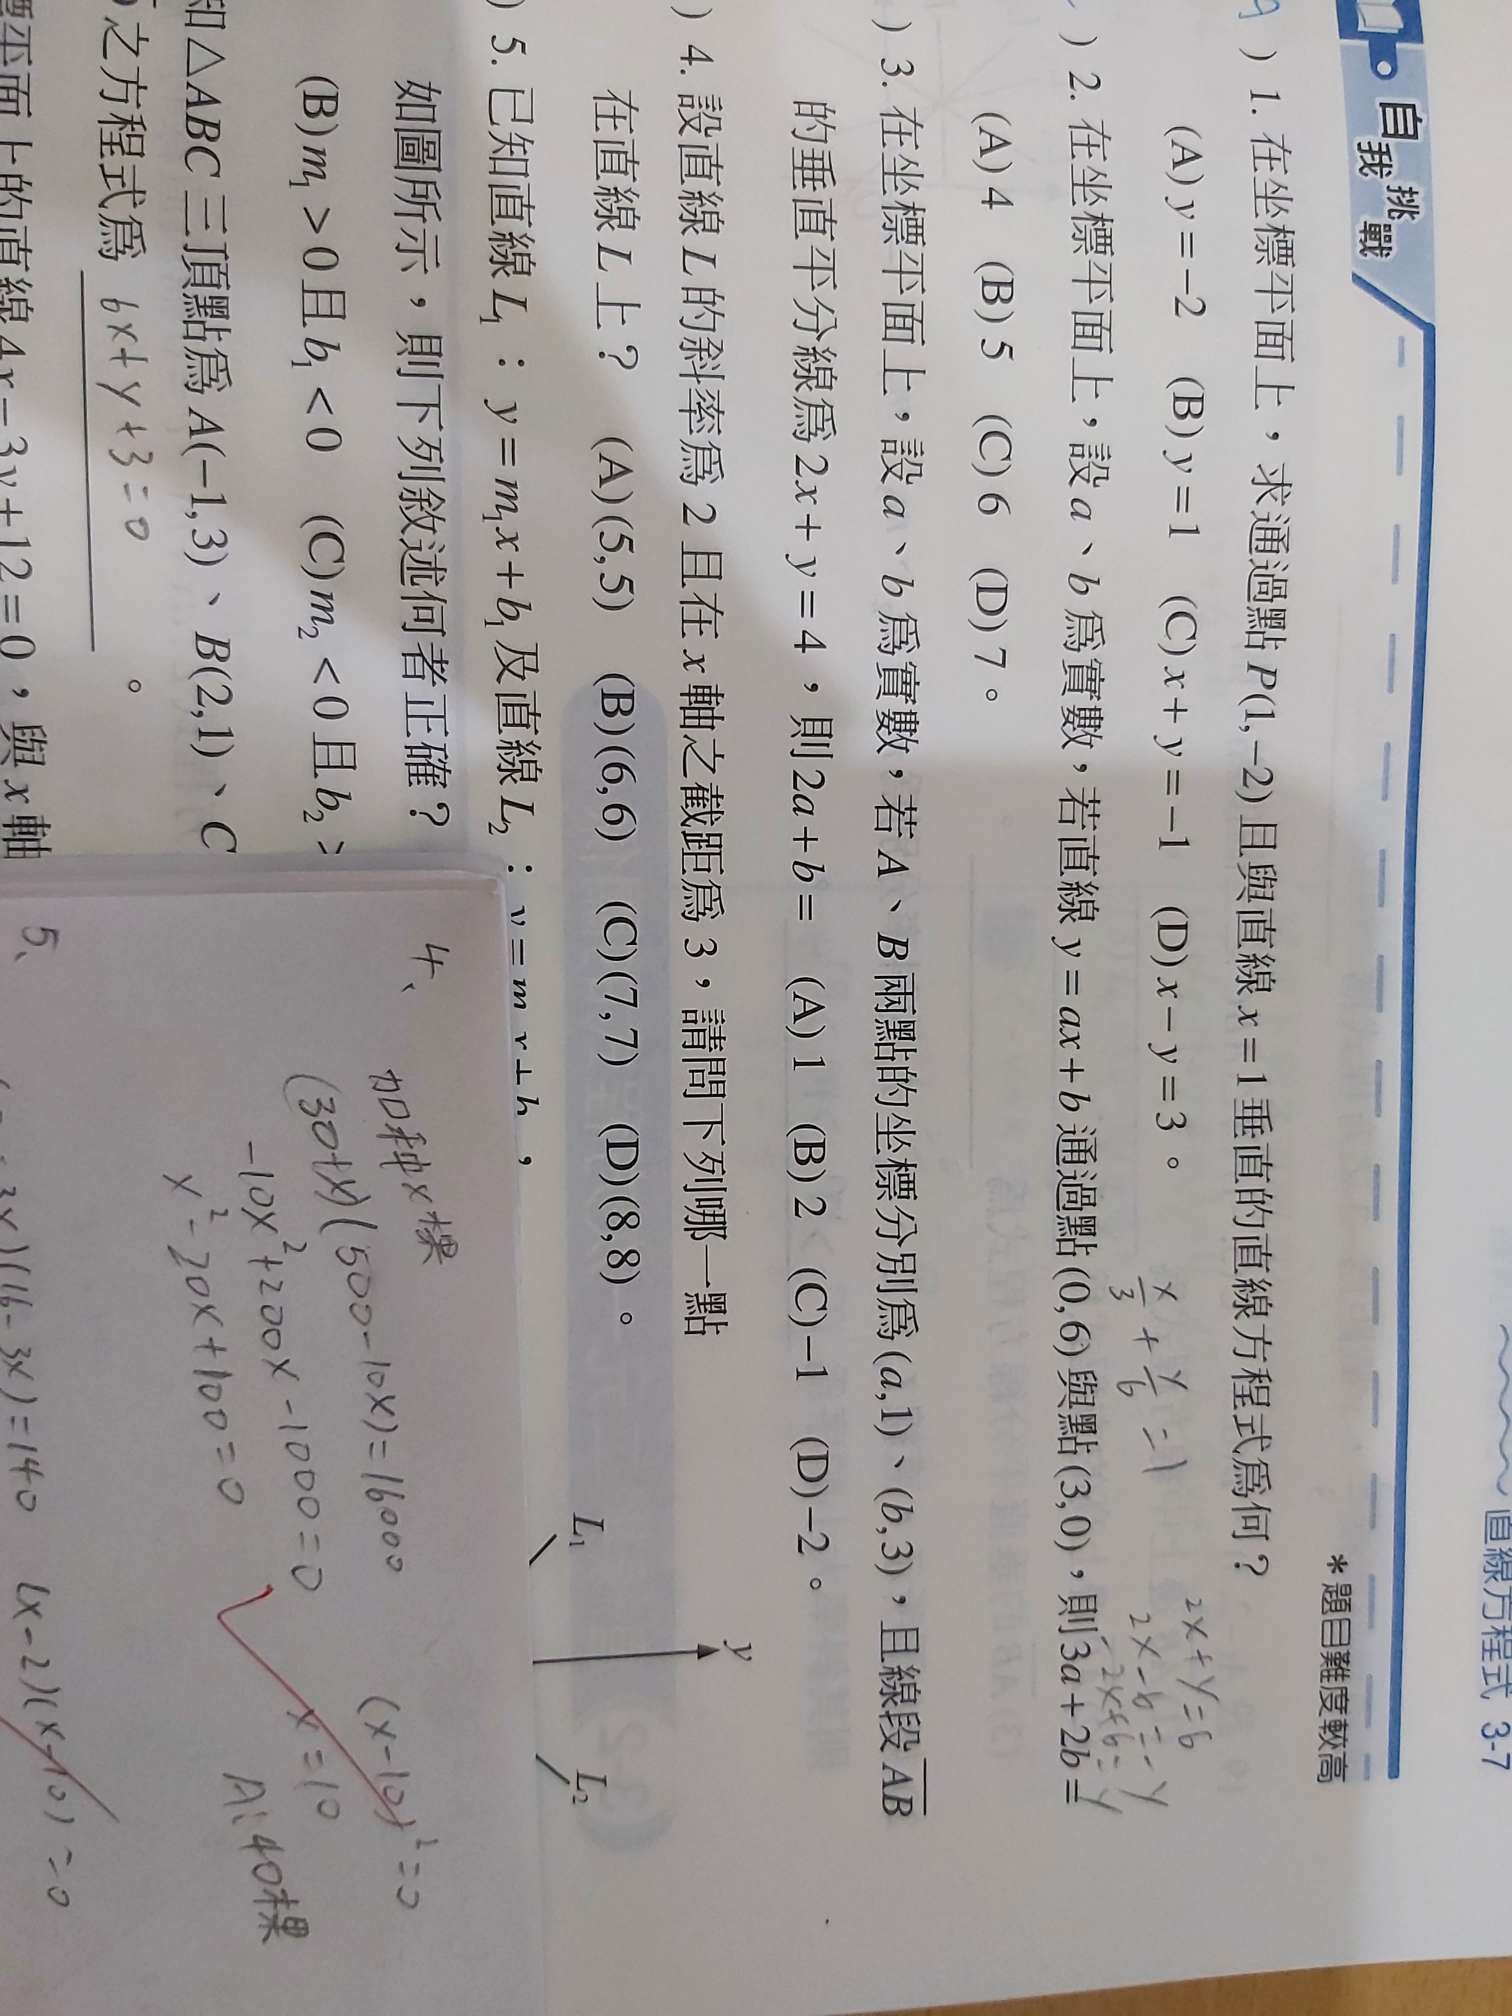 直線方程式 3-7
自我挑戰
*題目難度較高
) 1. 在坐標平面上，求通過點P(1,−2)且與直線x=1垂直的直線方程式為何？
(A)y=−2 (B)y=1 (C)x+y=−1 (D)x−y=3。
x/3+y/6=1
2x+y=6
2x−6=−y
−2x+6=y
) 2. 在坐標平面上，設a、b為實數，若直線y=ax+b通過點(0,6)與點(3,0)，則3a+2b=
(A)4 (B)5 (C)6 (D)7。
) 3. 在坐標平面上，設a、b為實數，若A、B兩點的坐標分別為(a,1)、(b,3)，且線段AB
的垂直平分線為2x+y=4，則2a+b= (A)1 (B)2 (C)−1 (D)−2。
) 4. 設直線L的斜率為2且在x軸之截距為3，請問下列哪一點
在直線L上？ (A)(5,5) (B)(6,6) (C)(7,7) (D)(8,8)。
) 5. 已知直線L₁：y=m₁x+b₁及直線L₂：y=m x+b，
如圖所示，則下列敘述何者正確？
(B)m₁>0且b₁<0 (C)m₂<0且b₂>
y
L₁
L₂
知△ABC三頂點為A(−1,3)、B(2,1)、C
之方程式為 6x+y+3=0 。
平面上的直線4x−3y+12=0，與x軸
4、
加種x棵
(30+x)(500−10x)=16000
−10x²+200x−1000=0
x²−20x+100=0
(x−10)²=0
x=10
A:40棵
5、
x)(16−3x)=140
(x−2)(x−10)=0